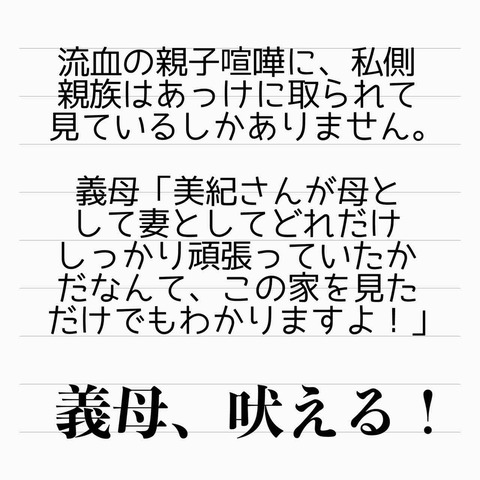 流血の親子喧嘩に、私側
親族はあっけに取られて
見ているしかありません。
義母「美紀さんが母と
して妻としてどれだけ
しっかり頑張っていたか
だなんて、この家を見た
だけでもわかりますよ！」
義母、吠える！